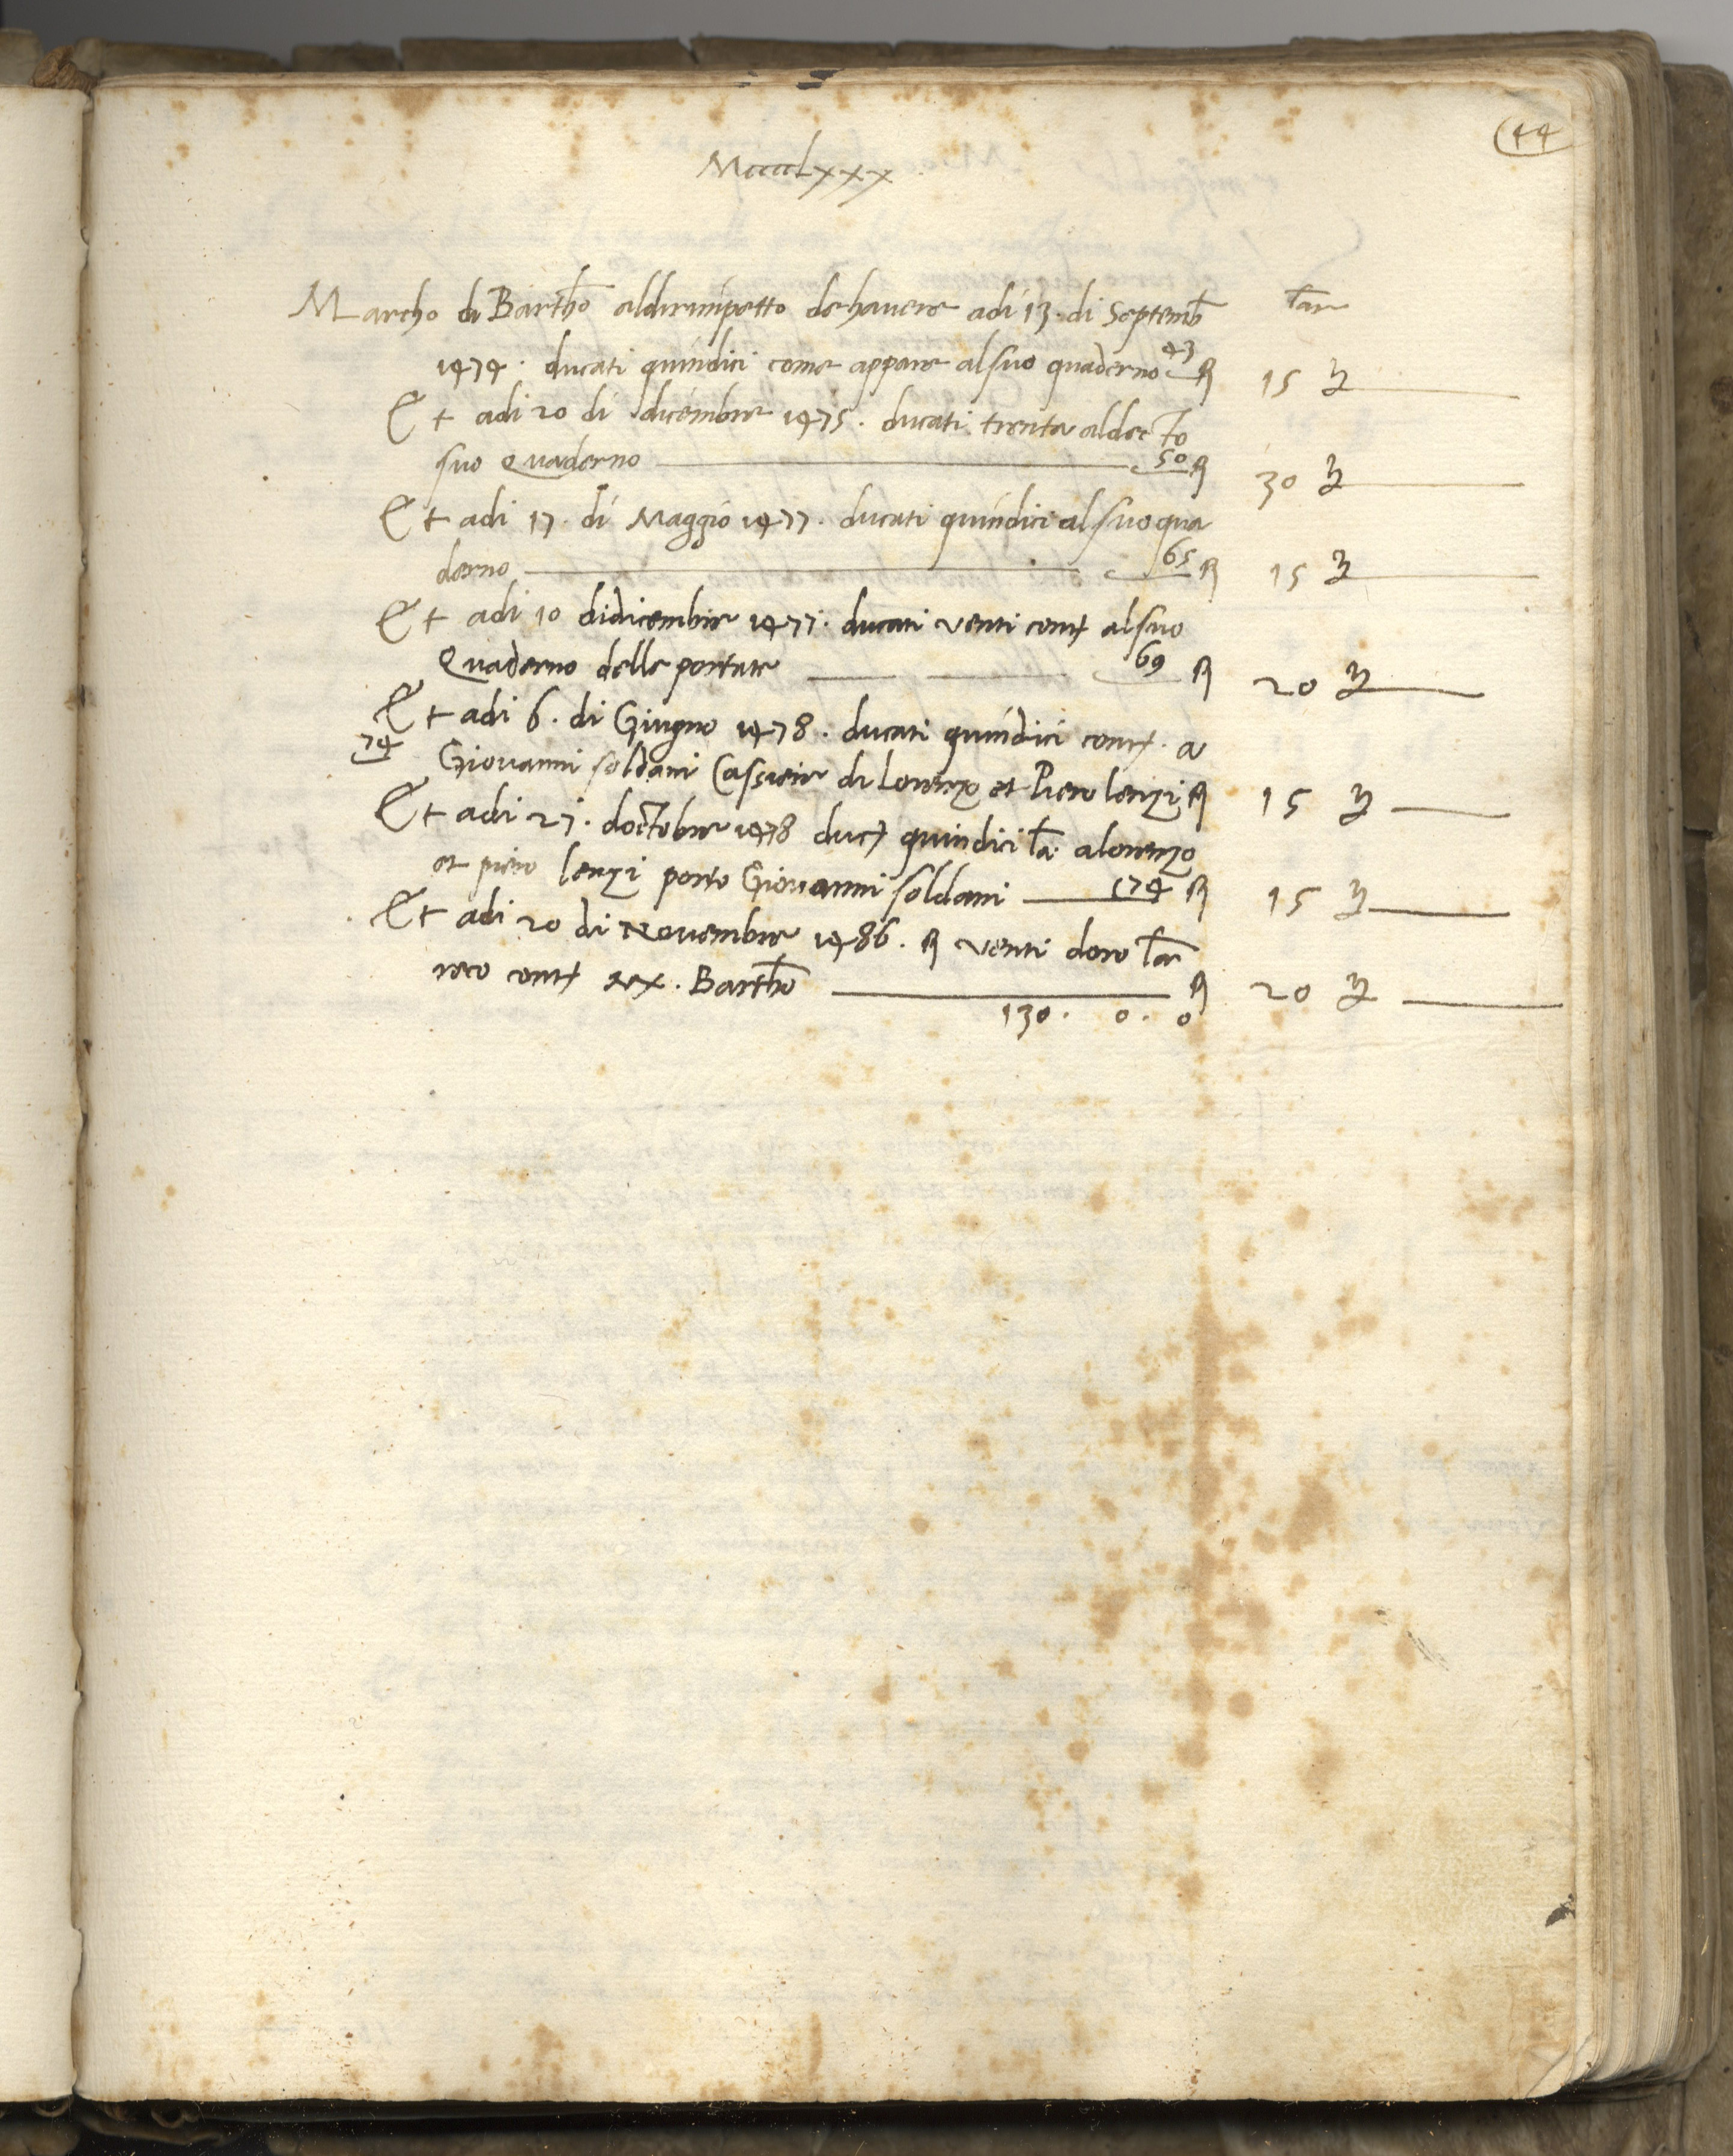 44
MccccLxxx
Marcho di Barth̄o aldirimpetto de havere adi 13. di Septemb̄ lar̄
1474. ducati quindici come appare alsuo quaderno 43 15
Et adi 20 di dicembre 1475. ducati trenta aldecto
suo Quaderno 50 30
Et adi 17. di Maggio 1477. ducati quindici al suo qua
derno 65 15
Et adi 10 didicembre 1477. ducati venti cont alsuo
Quaderno delle portate 69 20
Et adi 6. di Giugno 1478. ducati quindici cont. a
74 Giovanni soldani Cassiere di Lorenzo et Piero lenzi 15
Et adi 27. doctobre 1478 duct quindici la. alorenzo
et piero lenzi porto Giovanni soldani 74 15
Et adi 20 di Novembre 1486. venti doro lar̄
reco cont Barth̄o 20
130. 0. 0